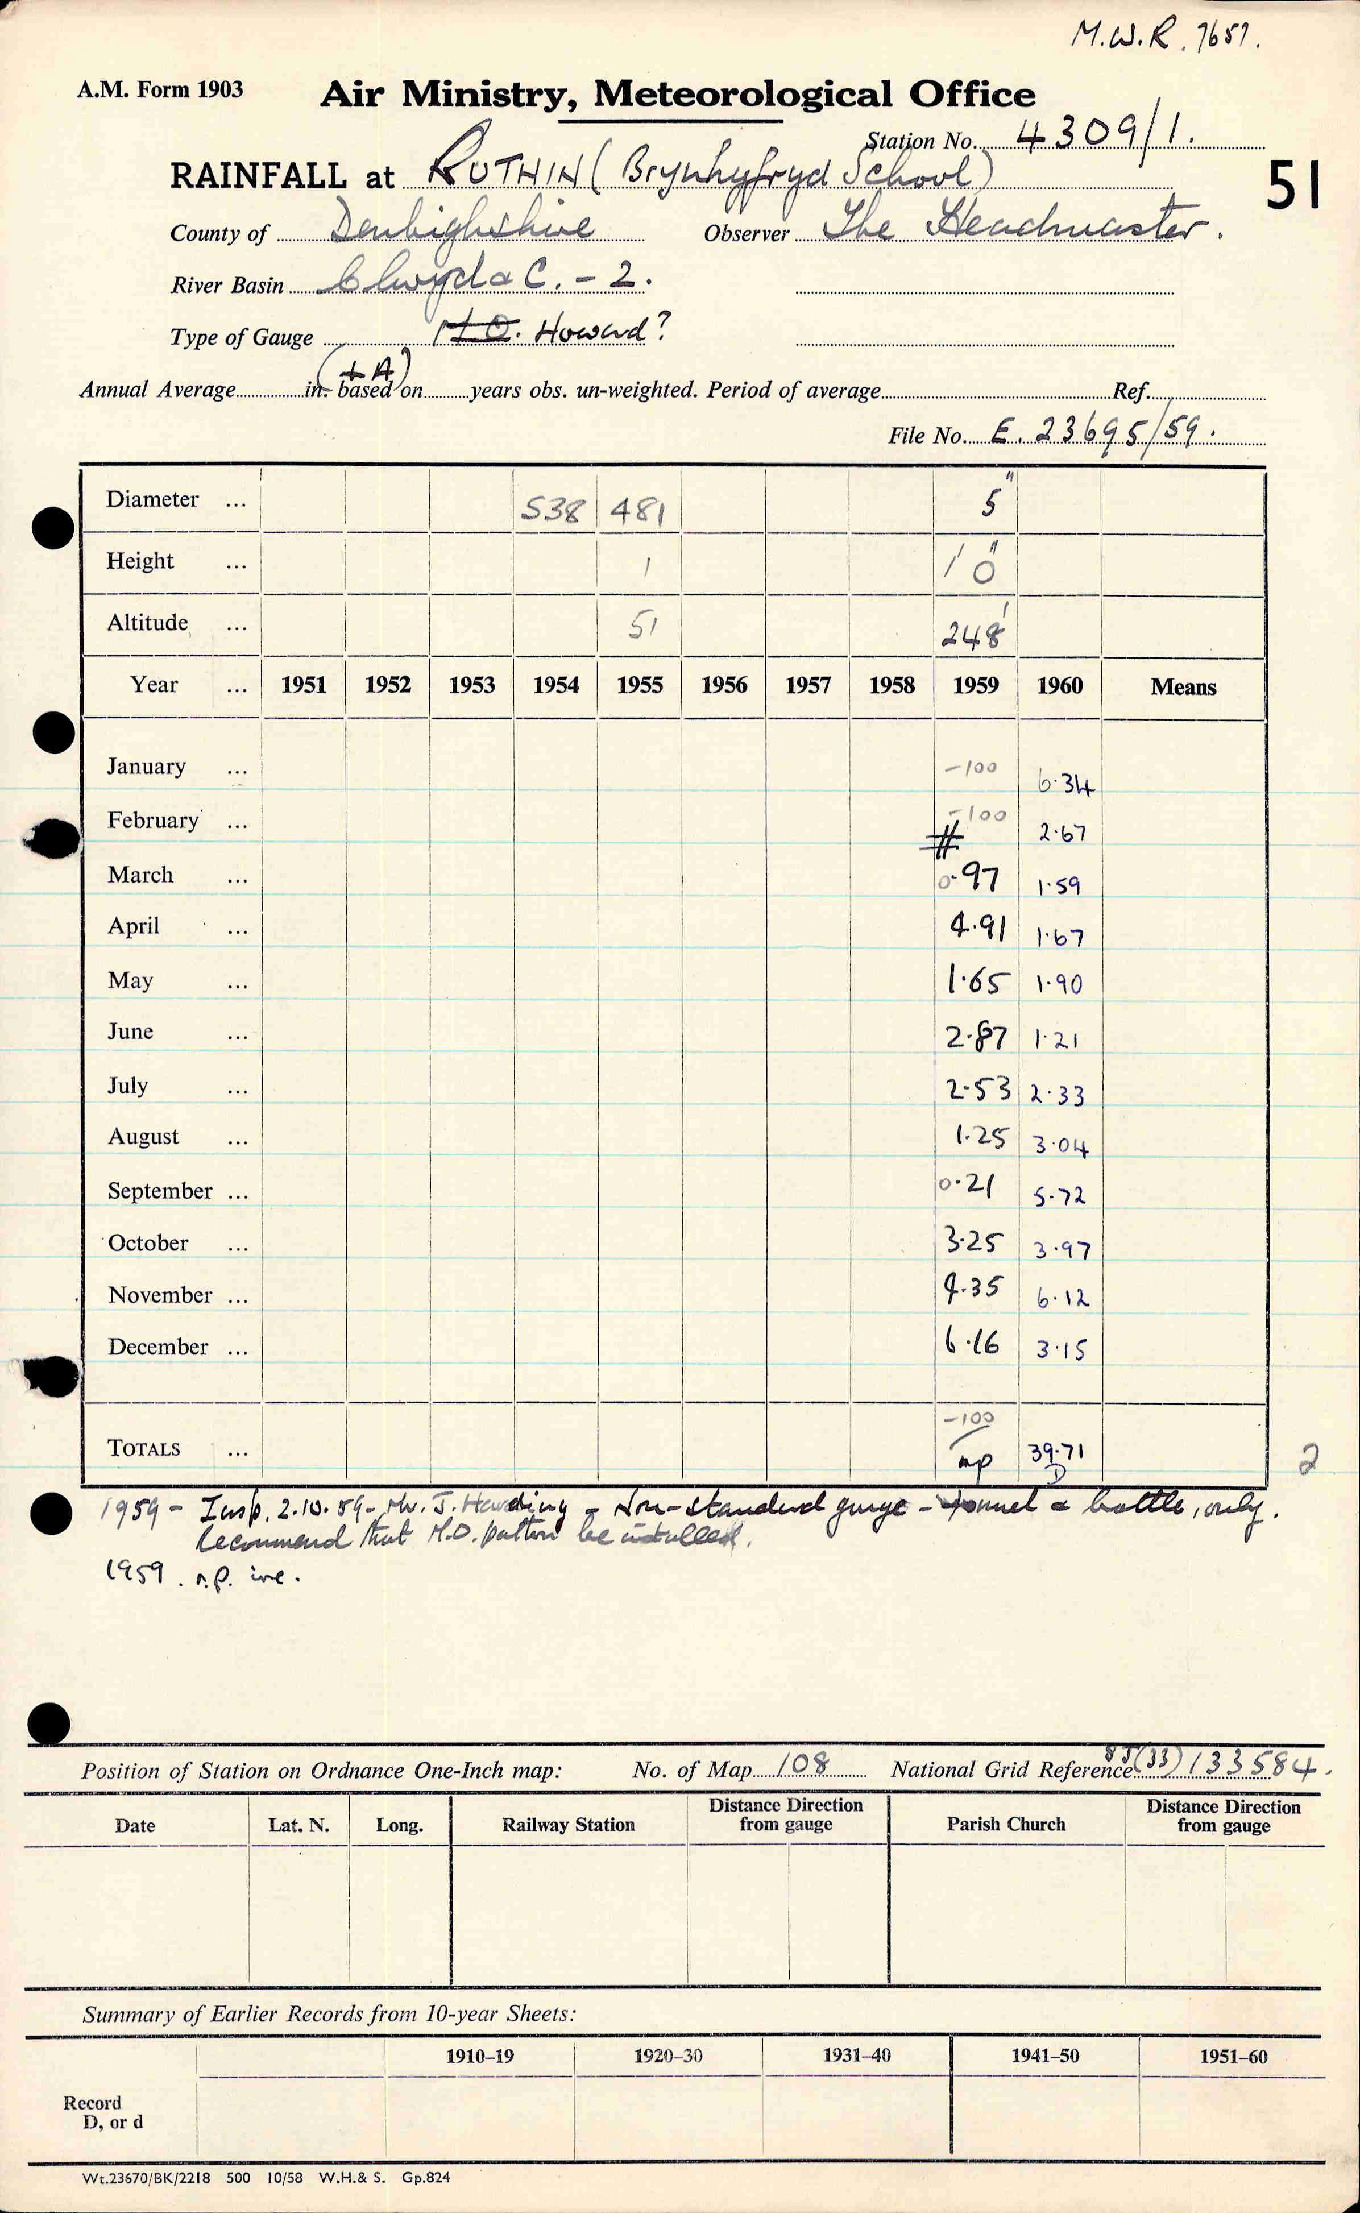 M.W.R. 7657.
A.M. Form 1903
Air Ministry, Meteorological Office
Station No. 4309/1.
RAINFALL at RUTHIN (Brynhyfryd School)
51
County of Denbighshire Observer The Headmaster.
River Basin Clwyd & C. - 2.
Type of Gauge M.O. Howard?
(+A)
Annual Average in. based on years obs. un-weighted. Period of average Ref.
File No. E. 23695/59.
Diameter ... 538 481 5"
Height ... 1 1' 0"
Altitude ... 51 248'
Year ... 1951 1952 1953 1954 1955 1956 1957 1958 1959 1960 Means
January ... -100 6.34
February ... -100 2.67
March ... 0.97 1.59
April ... 4.91 1.67
May ... 1.65 1.90
June ... 2.87 1.21
July ... 2.53 2.33
August ... 1.25 3.04
September ... 0.21 5.72
October ... 3.25 3.97
November ... 4.35 6.12
December ... 6.16 3.15
-100
TOTALS ... np 39.71 2
D
1959 - Insp. 2.10.59 - Mr. J. Harding - Non-standard gauge - funnel & bottle, only.
Recommend that M.O. pattern be installed.
1959. n.p. inc.
Position of Station on Ordnance One-Inch map: No. of Map 108 National Grid Reference SJ(33)133584.
Date Lat. N. Long. Railway Station Distance Direction from gauge Parish Church Distance Direction from gauge
Summary of Earlier Records from 10-year Sheets:
1910–19 1920–30 1931–40 1941–50 1951–60
Record
D, or d
Wt.23670/BK/2218 500 10/58 W.H.& S. Gp.824